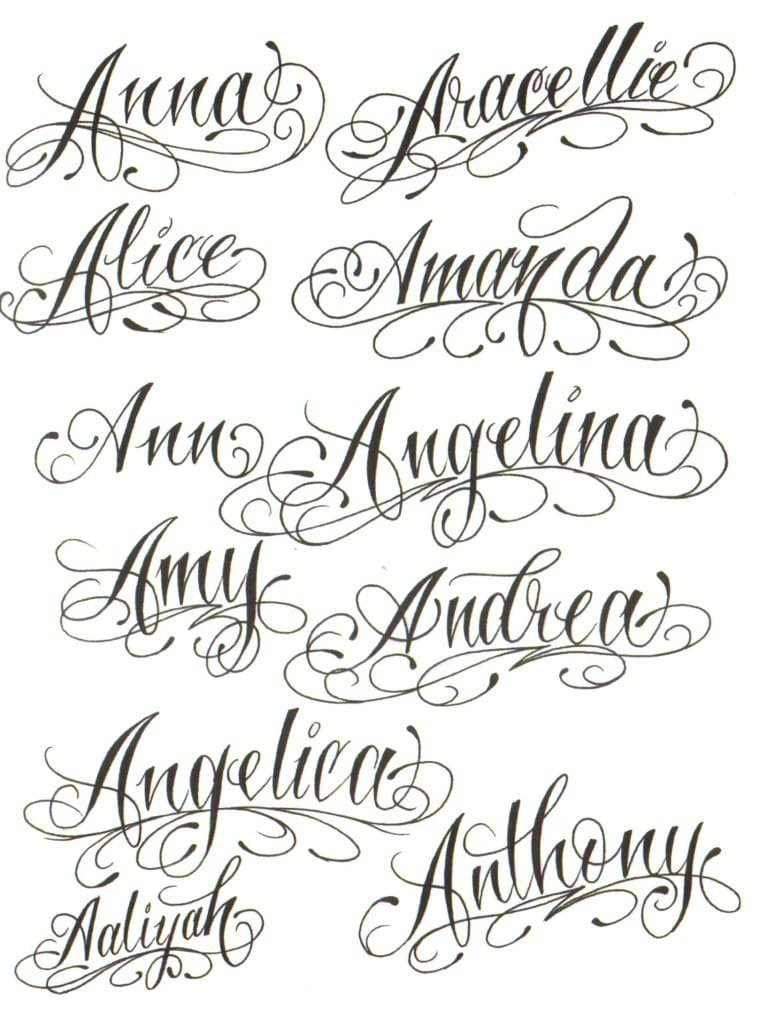 Anna
Aracellie
Alice
Amanda
Ann
Angelina
Amy
Andrea
Angelica
Anthony
Aaliyah